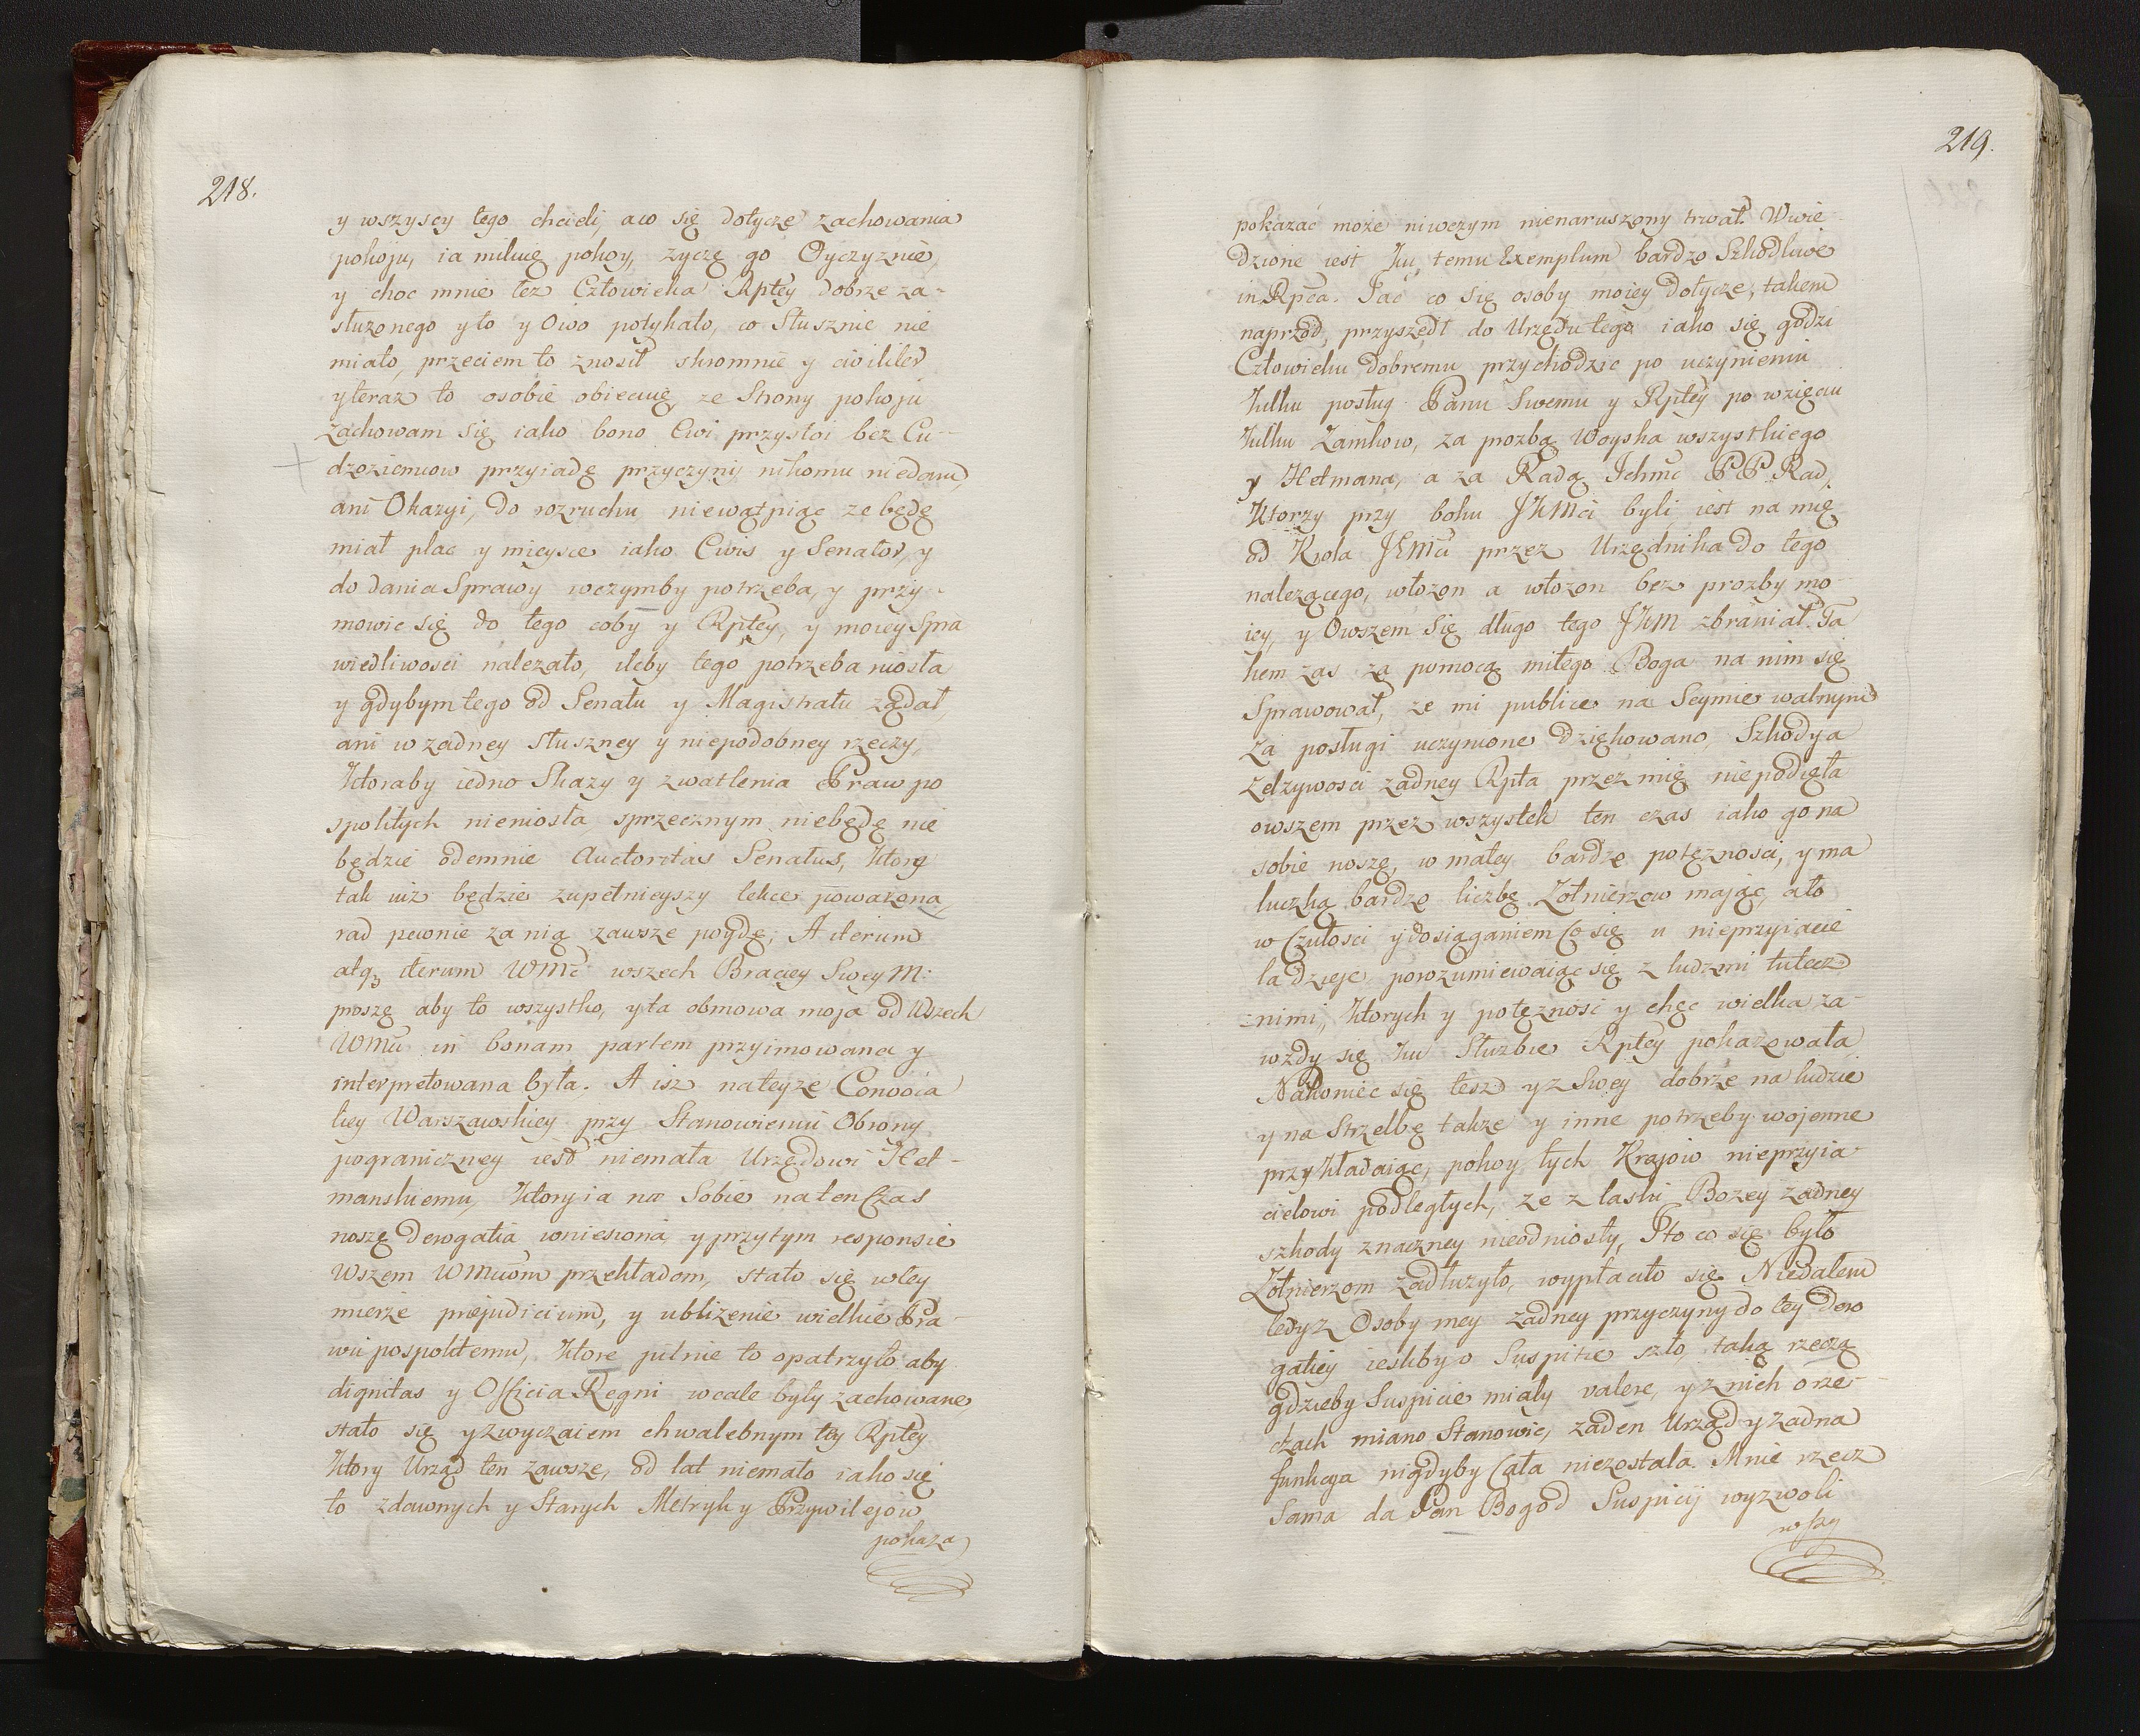 218.
y wszyscy tego chcieli, aco się dotycze zachowania
pokoju, ia miluię pokoy, zyczę go Oyczyznie,
y choc mnie tez Człowieka Rpłey dobrze za-
słuzonego y to y Owo potykało, co Słusznie nie
miało, przeciem to znosił skromnie y civiliter
y teraz to osobie obiecuię, ze Strony pokoju
zachowam się iako bono Civi przystoi bez Cu-
dzoziemcow przyiadę przyczyny nikomu niedam,
ani Okazyi, do rozruchu niewątpiąc ze będę
miał plac y mieysce iako Civis y Senator, y
do dania Sprawy wczymby potrzeba, y przy-
mowic się do tego coby y Rpłey, y moiey Spra
wiedliwosci nalezało, ileby tego potrzeba niosła
y gdybym tego od Senatu y Magistratu ządał,
ani w zadney słuszney y niepodobney rzeczy,
Ktoraby iedno Skazy y zwatlenia Praw po
spolitych nieniosła sprzecznym niebędę nie
będzie odemnie Auctoritas Senatus, Ktory
tak iuz będzie zupełnieyszy lekce powazona,
rad pewnie za nią zawsze poydę; A iterum
atq3 iterum WMc wszech Braciey Swey M:
proszę aby to wszystko, y ta obmowa moja od Wszech
WMci in bonam partem przyimowana y
interpretowana była. A isz nateyze Convoca
tiey Warszawskiey przy Stanowieniu Obrony
pograniczney iest niemała Urzędowi Het-
manskiemu, Ktory ia na Sobie naten Czas
noszę derogatia wniesiona, y przytym responsie
Wszem WMciom przekładom, stało się wtey
mierze prejudicium, y ublizenie wielkie Pra-
wu pospolitemu, Ktore pilnie to opatrzyło aby
dignitas y Officia Regni wcale były zachowane,
stało się y zwyczaiem chwalebnym tey Rpłey
Ktory Urząd ten zawsze, od lat niemało iako się
to zdawnych y Starych Metryk y Przywilejow
pokaza
219.
pokazać moze niwczym nienaruszony trwał. Wwie
dzione iest Ku temu Exemplum bardzo Szkodliwe
in Rpca. Jać co się osoby moiey dotycze, takem
naprzod, przyszedł do Urzędu tego iako się godzi
Człowieku dobremu przychodzic po uczynieniu
Kilku posług Panu Swemu y Rpłey po wzięciu
Kilku Zamkow, za prozbą Woyska wszystkiego
y Hetmana, a za Radą Ichmc PP Rad,
Ktorzy przy boku JKMci byli iest na mię
od Krola JKMci przez Urzędnika do tego
nalezącego, włozon a włozon bez prozby mo-
iey, y Owszem Się długo tego JKM zbraniał. Ta
kem zas za pomocą miłego Boga na nim się
Sprawował, ze mi publice na Seymie walnym
Za posługi uczynione dziękowano, Szkody a
Zelzywosci zadney Rpta przez mię niepodięła
owszem przez wszystek ten czas iako go na
sobie noszę, w małey bardzo potęznosci, y ma
luczką bardzo liczbę Zołnierzow mając, ato
w Czułosci y dosiąganiem Co się u nieprzyiacie
la dzieje porozumiewaiąc się z ludzmi tutecz
nimi, Ktorych y potęznosć y chęc wielka za-
wzdy się Ku Słuzbie Rpłey pokazowała,
Nakoniec się tesz y z Swey dobrze na ludzie
y na Strzelbę takze y inne potrzeby wojenne
przykładaiąc, pokoy tych Krajow nieprzyia
cielowi podległych, ze z łaski Bozey zadney
szkody znaczney nieodniosły, I to co się było
Zołnierzom zadłuzyło, wypłaciło się. Niedałem
tedy z Osoby mey zadney przyczyny do tey dero
gatiey iesliby o Suspitie szło, taką rzeczą
gdzieby Suspicie miały valere, y z nich o rze-
czach miano Stanowic, zaden Urząd y zadna
funkcya nigdyby Cała niezostała. Mnie rzecz
Sama da Pan Bog od Suspicij wyzwoli
wszy